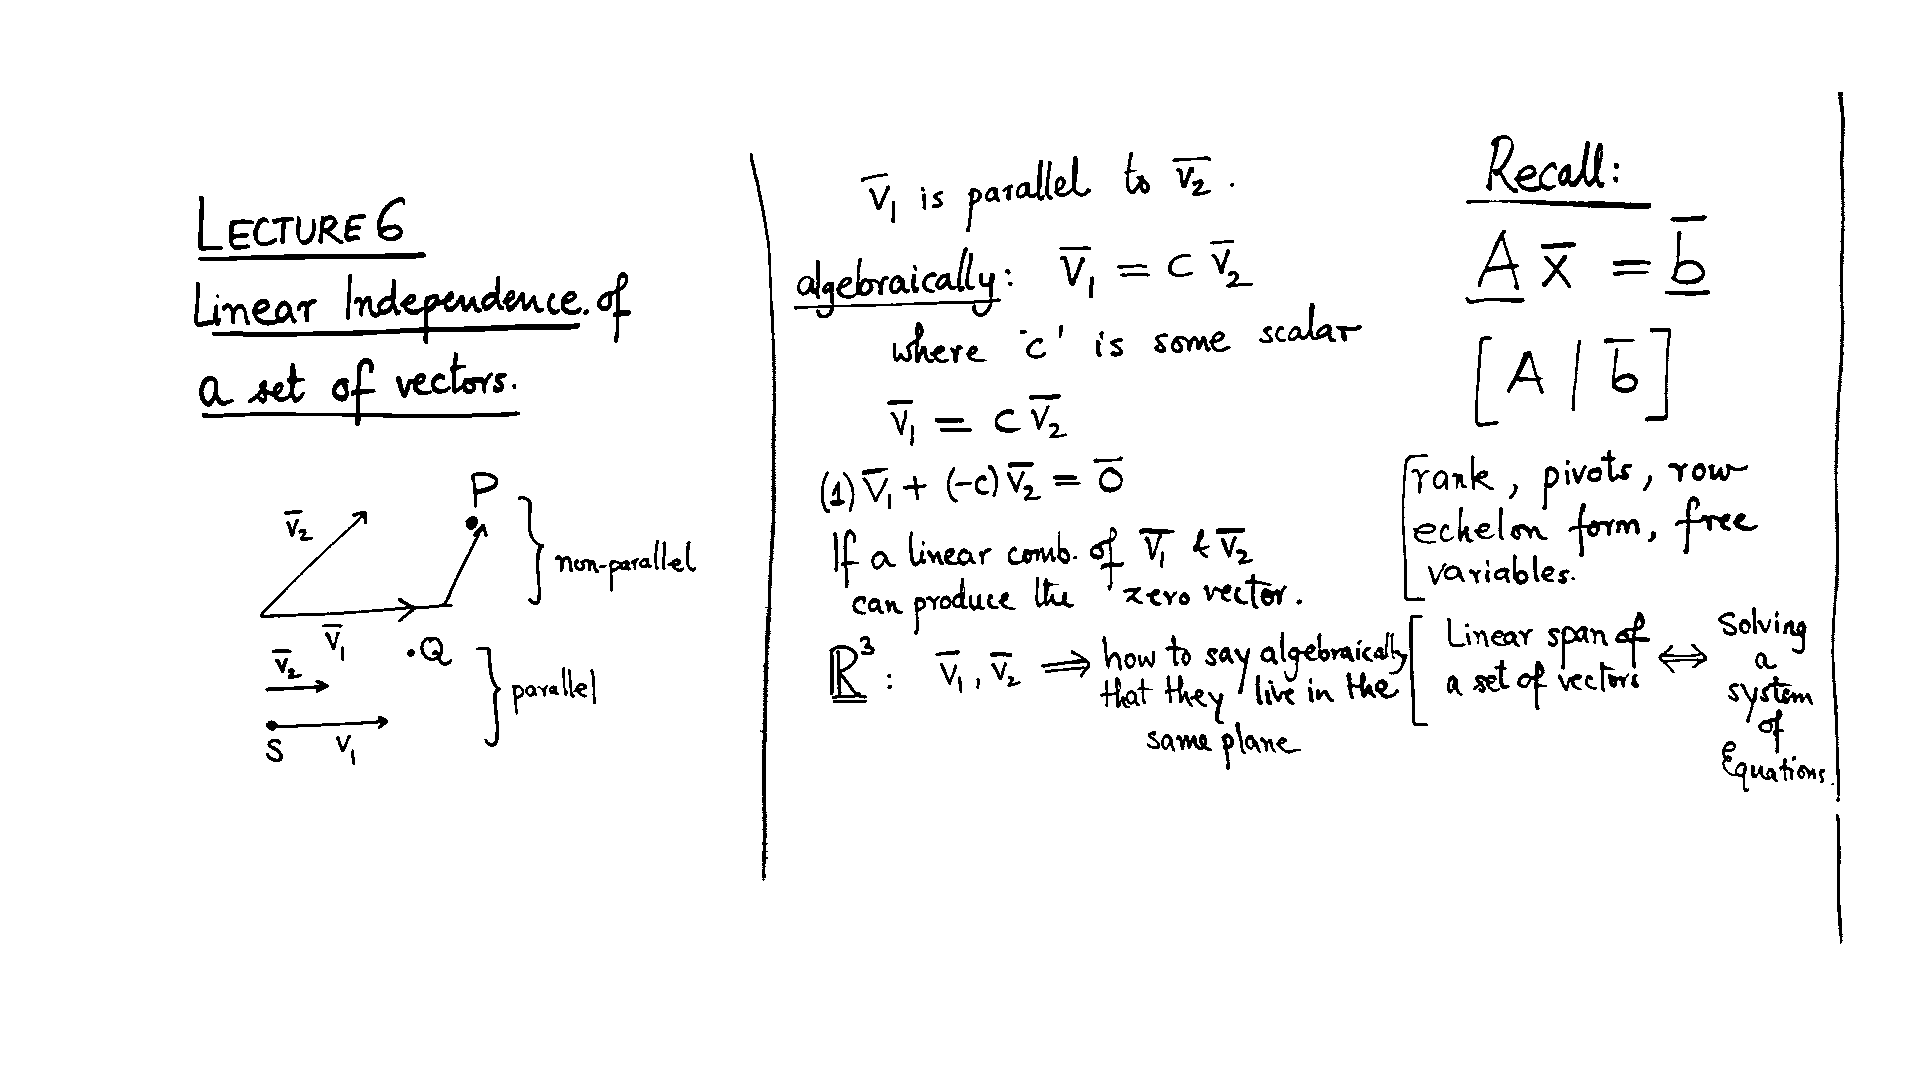 LECTURE 6
Linear Independence of
a set of vectors.
P
v̅₂
non-parallel
v̅₁
.Q
v̅₂
parallel
S
v₁
v̅₁ is parallel to v̅₂.
algebraically: v̅₁ = c v̅₂
where 'c' is some scalar
v̅₁ = c v̅₂
(1) v̅₁ + (-c) v̅₂ = 0̅
If a linear comb. of v̅₁ & v̅₂
can produce the zero vector.
ℝ³: v̅₁, v̅₂ ⟹ how to say algebraically
that they live in the
same plane
Recall:
A x̅ = b̅
[A | b̅]
rank, pivots, row
echelon form, free
variables.
Linear span of
a set of vectors
⟺
Solving
a
system
of
Equations.